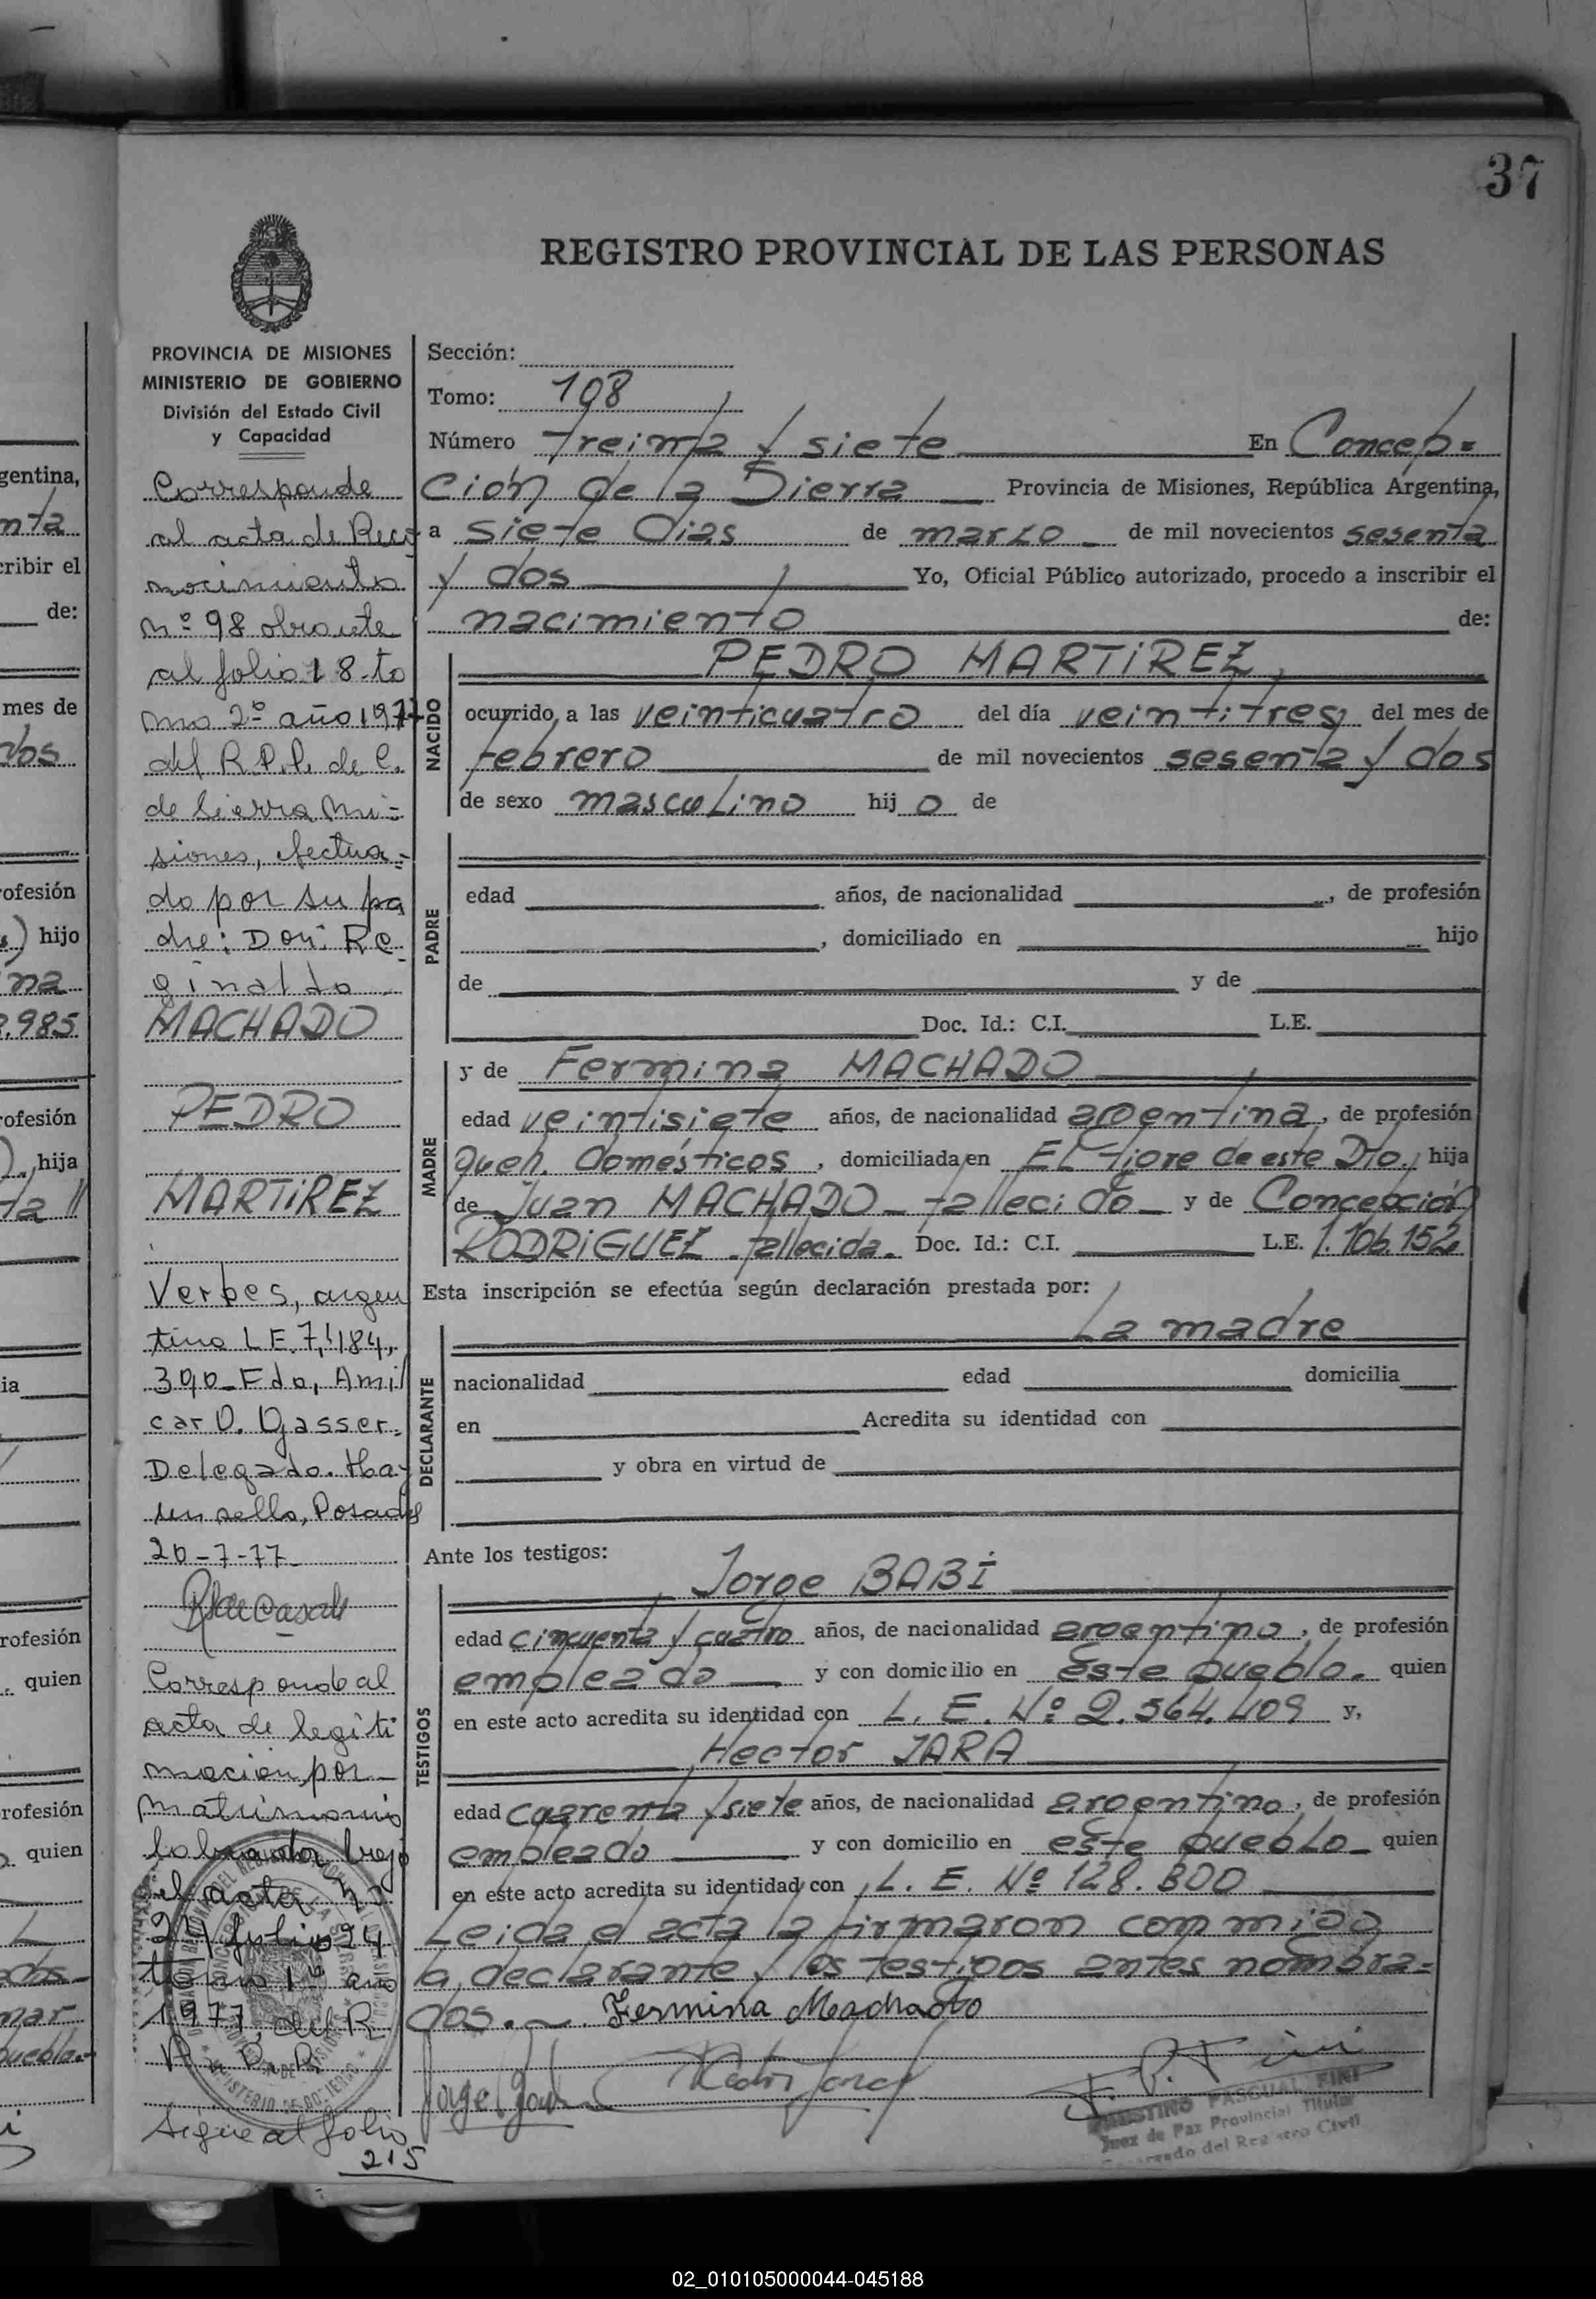 37
REGISTRO PROVINCIAL DE LAS PERSONAS
PROVINCIA DE MISIONES
MINISTERIO DE GOBIERNO
División del Estado Civil
y Capacidad
Corresponde
al acta de Reco
nocimiento
nº 98 obrante
al folio 18 to
mo 2º año 1977
del R.P.P. de C.
de Sierra Mi=
siones, efectua-
do por su pa
dre: Don: Re-
ginaldo
MACHADO
PEDRO
MARTIREZ
Verbes, argen
tino L E. 7,184,
390_Fdo, Amil
car D. Gasser.
Delegado. Hay
un sello, Posadas
20-7-77_
Corresponde al
acta de legiti
mación por
matrimonio
labrada bajo
el acta nº
24 folio 24
tomo 1º año
1977, del R.
P. P.
Sigue al folio
215
Sección:
Tomo: 108
Número treinta y siete En Concep=
ción de la Sierra Provincia de Misiones, República Argentina,
a siete días de marzo de mil novecientos sesenta
y dos Yo, Oficial Público autorizado, procedo a inscribir el
nacimiento de:
NACIDO
PEDRO MARTIREZ,
ocurrido, a las veinticuatro del día veintitres del mes de
febrero de mil novecientos sesenta y dos
de sexo masculino hij o de
PADRE
edad años, de nacionalidad , de profesión
, domiciliado en hijo
de y de
Doc. Id.: C.I. L.E.
MADRE
y de Fermina MACHADO
edad veintisiete años, de nacionalidad argentina, de profesión
queh. domésticos, domiciliada en El Tigre de este Dto., hija
de Juan MACHADO_fallecido_ y de Concepción
RODRIGUEZ_fallecida. Doc. Id.: C.I. L.E. 1.106.152
Esta inscripción se efectúa según declaración prestada por:
DECLARANTE
La madre
nacionalidad edad domicilia
en Acredita su identidad con
y obra en virtud de
Ante los testigos:
TESTIGOS
Jorge BABI
edad cincuenta y cuatro años, de nacionalidad argentino, de profesión
empleado y con domicilio en este pueblo. quien
en este acto acredita su identidad con L. E. Nº 2.564.409 y,
Hector JARA
edad cuarenta y siete años, de nacionalidad argentino, de profesión
empleado y con domicilio en este pueblo_ quien
en este acto acredita su identidad con L. E. Nº 128.800
Leida el acta la firmaron conmigo
la declarante y los testigos antes nombra=
dos.
Fermina Machado
F. P. Fini
FAUSTINO PASCUAL FINI
Juez de Paz Provincial Titular
Encargado del Registro Civil
gentina,
nta
cribir el
de:
mes de
dos
rofesión
hijo
na
.985
rofesión
hija
ia
rofesión
quien
rofesión
quien
02_010105000044-045188